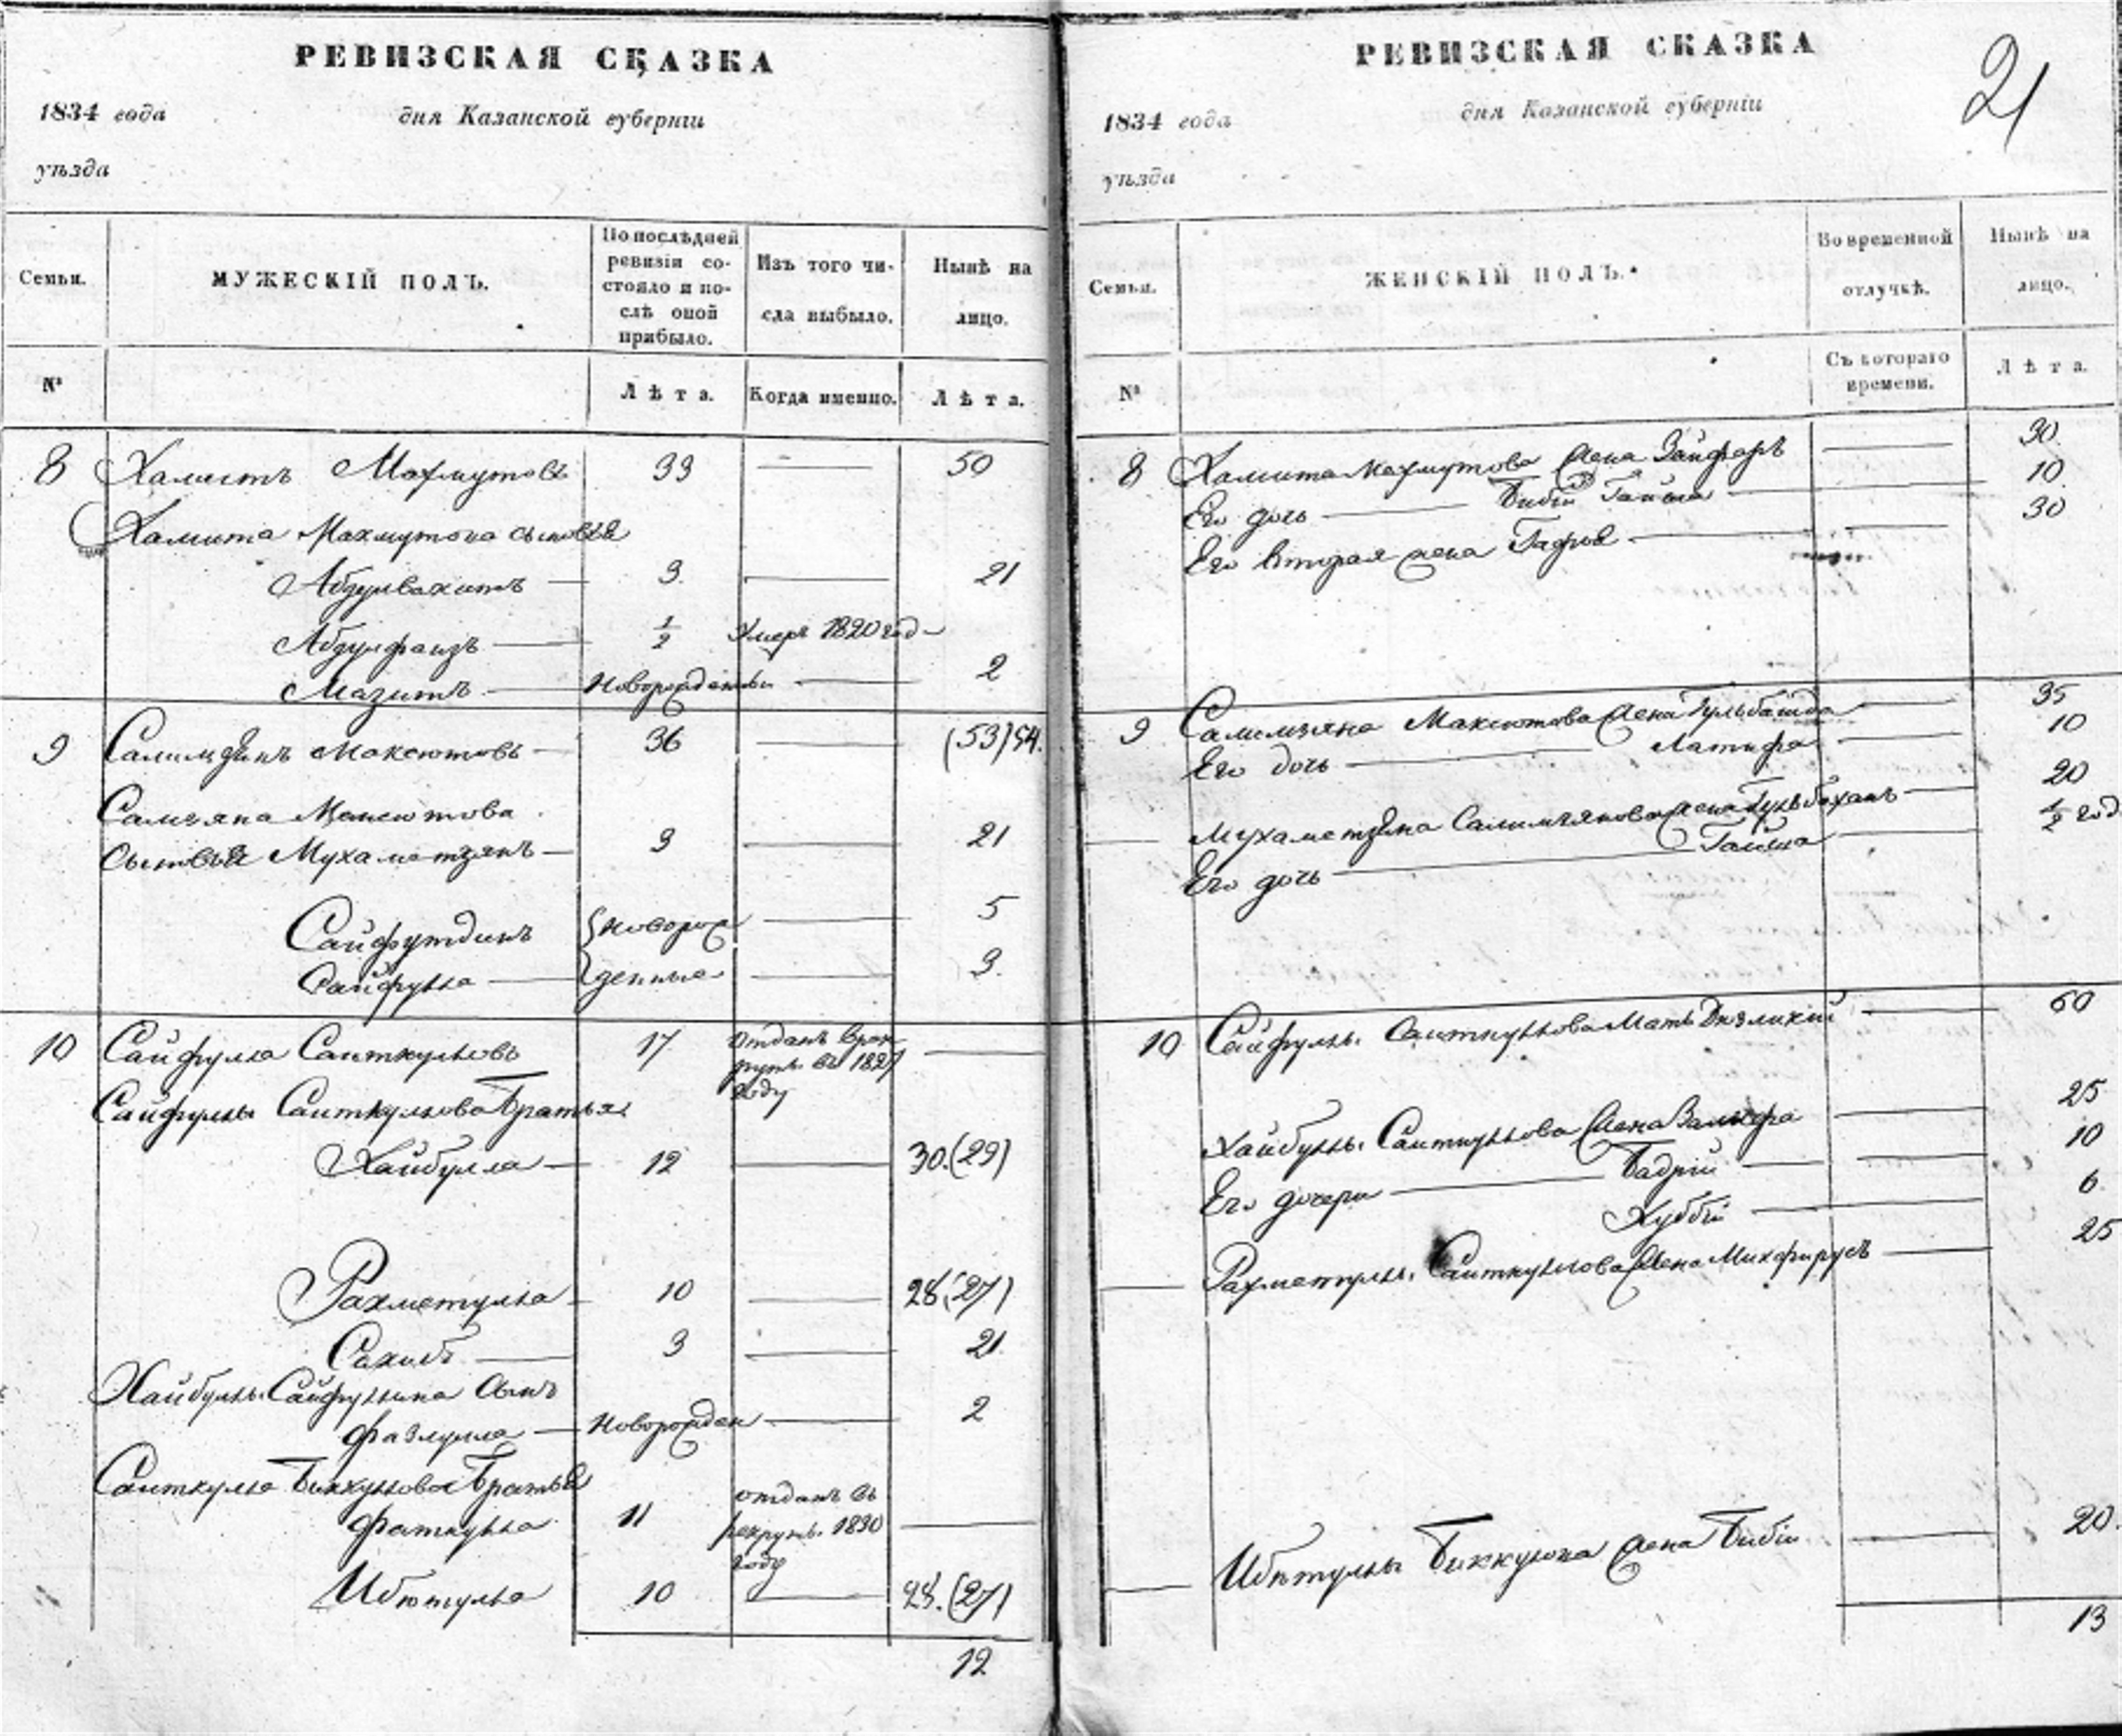 РЕВИЗСКАЯ СКАЗКА
1834 года дня Казанской губерніи
уѣзда
Семьи. МУЖЕСКІЙ ПОЛЪ. По послѣдней ревизіи состояло и послѣ оной прибыло. Изъ того числа выбыло. Нынѣ на лицо.
№ Лѣта. Когда именно. Лѣта.
8 Хамитъ Махмутовъ 33 50
Хамита Махмутова сыновья
Абдулвахитъ 3. 21
Абдулфаизъ 1/2 Умеръ 1820 год
Мазитъ Новорожденны 2
9 Салимзянъ Максютовъ 36 (53) 54.
Салмзяна Максютова
Сыновья Мухаметзянъ 3 21
Сайфутдинъ новорож 5
Сайфулла денные 3.
10 Сайфулла Саиткуловъ 17 отданъ в рекруты въ 1827 году
Сайфуллы Саиткулова Братья
Хайбулла 12 30.(29)
Рахметулла 10 28(27)
Сахибъ 3 21
Хайбуллы Сайфуллина Сынъ
Фазлулла Новорожден 2
Саткулла Биккулова Братья
Фаткулла 11 отданъ въ рекруты 1830 году
Ибътулла 10 28.(27)
12
РЕВИЗСКАЯ СКАЗКА
21
1834 года дня Казанской губерніи
уѣзда
Семьи. ЖЕНСКІЙ ПОЛЪ. Во временной отлучкѣ. Нынѣ на лицо.
№ Съ котораго времени. Лѣта.
8 Хамита Махмутова жена Зайфаръ 30.
Его дочь Биби Гайша 10.
Его вторая жена 30
9 Салимзяна Максютова жена Гульбашда 35
Его дочь Латифа 10
Мухаметзяна Салимзянова жена Гульбаханъ 20
Его дочь Гайша 1/2 год
10 Сайфуллы Саиткулова Мать 60
Хайбуллы Саиткулова жена 25
Его дочери Бадри 10
Хубби 6
Рахметуллы Саиткулова жена Михфирузъ 25
Ибътуллы Биккулова жена Биби 20.
13